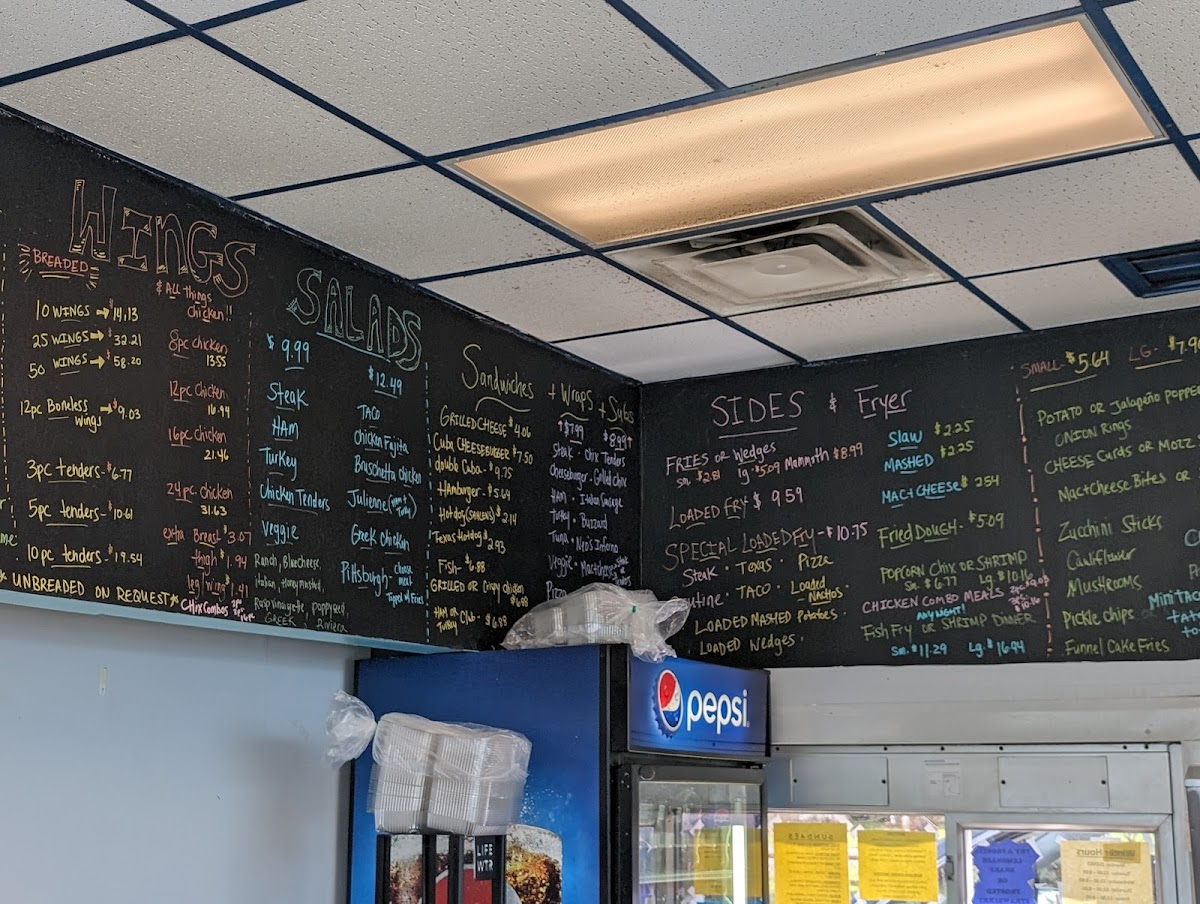 WINGS
BREADED
10 WINGS → $14.13
25 WINGS → $32.21
50 WINGS → $58.20
12pc Boneless wings → $9.03
3pc tenders - $6.77
5pc tenders - $10.61
10pc tenders - $19.54
UNBREADED ON REQUEST*
& ALL things
chicken!!
8pc chicken
13.55
12pc chicken
16.94
16pc chicken
21.46
24pc chicken
31.63
extra Breast $3.07
thigh $1.94
leg/wing $1.41
CHKN Combos
SALADS
$9.99
Steak
HAM
Turkey
Chicken Tenders
Veggie
$12.49
TACO
Chicken Fajita
Bruschetta chicken
Julienne (Ham & Turkey)
Greek Chicken
Pittsburgh - choose meat
Topped w/ Fries
Ranch, Blue cheese,
Italian, Honey mustard,
Rasp vinaigrette, poppyseed,
GREEK, Riviera
Sandwiches
GRILLED CHEESE $4.06
Cuba CHEESEBURGER $7.50
double Cuba - $9.75
Hamburger - $5.64
Hotdog (SAHLENS) $2.14
Texas Hotdog $2.93
Fish - $6.88
GRILLED OR Crispy chicken $6.88
HAM OR Turkey Club - $6.88
+ Wraps + Subs
$7.99 $8.99
Steak · Chix Tenders
Cheeseburger · Grilled chix
HAM · Italian Sausage
Turkey · Buzzard
Tuna · Neo's Inferno
Veggie · Mac+cheese
SIDES & Fryer
FRIES OR Wedges
Sm. $2.81 lg. $5.09 Mammoth $8.99
LOADED FRY $9.59
SPECIAL LOADED FRY - $10.75
Steak · Texas · Pizza
utine · TACO · Loaded Nachos
LOADED MASHED Potatoes
LOADED Wedges
Slaw $2.25
MASHED $2.25
MAC+CHEESE $2.54
Fried Dough - $5.09
POPCORN Chix OR SHRIMP
Sm. $6.77 Lg. $10.16
CHICKEN COMBO MEALS
ANY NIGHT!
Fish Fry OR SHRIMP DINNER
Sm. $11.29 Lg. $16.94
SMALL - $5.64 LG - $7.9
POTATO OR Jalapeño poppe
ONION Rings
CHEESE Curds OR Mozz
Mac+Cheese Bites or
Zucchini Sticks
Cauliflower
Mushrooms
Pickle chips
Funnel Cake Fries
Mini tac
pepsi
LIFE
WTR
SUNDAES
Winter Hours